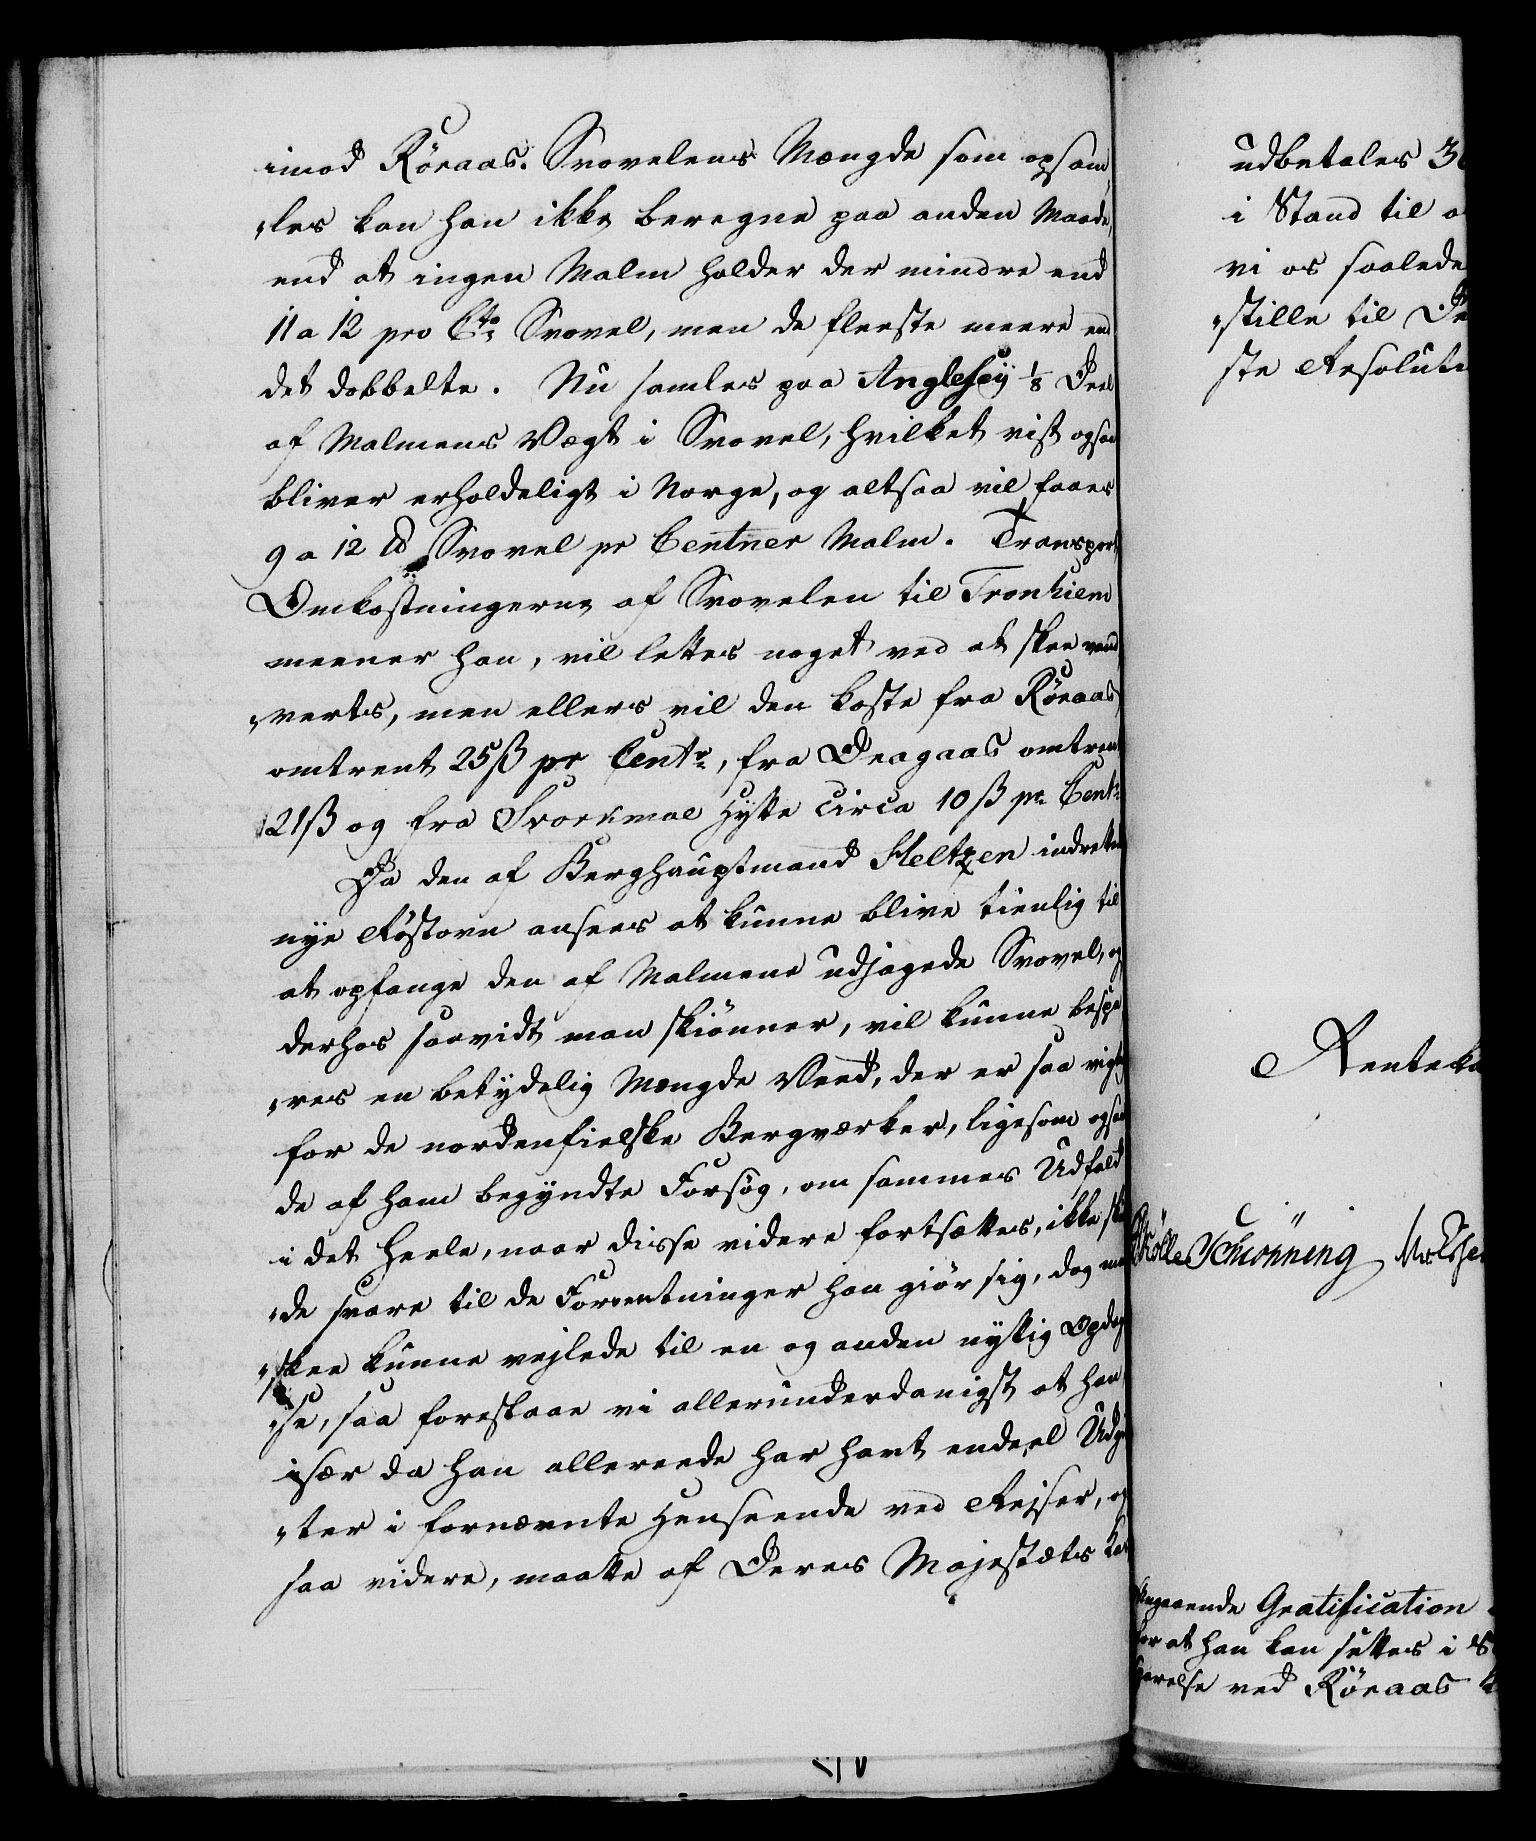 imod Röraas. Svovelens Mængde som opsam,
„les kan han ikke beregne paa anden Maade,
end at ingen Malm holder der mindre end
11 a 12 pro Cto Svovel, men de fleeste meere end
det dobbelte. Nu samles paa Anglesey 1/8 Deel
af Malmens Vægt i Svovel, hvilket vist ogsaa
bliver erholdeligt i Norge, og altsaa vil faaes
9 a 12 ℔ Svovel pr Centner Malm. Transport
Omkostningerne af Svovelen til Tronhiem
meener han, vil lettes noget ved at skee vand
„verts, men ellers vil den koste fra Röraas
omtrent 25 ß pr Centr, fra Dragaas omtrent
21 ß og fra Svorkmoe Hytte circa 10 ß pr Centr
Da den af Berghauptmand Heltzen indrettede
nye Röstovn ansees at kunne blive tienlig til
at opfange den af Malmene udjagede Svovel, og
derhos saavidt man skiönner, vil kunne bespa
„res en betydelig Mængde Veed, der er saa vigtig
for de nordenfielske Bergværker, ligesom ogsaa
de af ham begyndte Forsög, om sammes Udfald
i det Heele, naar disse videre fortsættes, ikke skul
„de svare til de Forventninger han giör sig, dog maa
„skee kunne vejlede til en og anden nyttig Opdagel
„se, saa foreslaae vi allerunderdanigst at han
især da han allereede har havt endeel Udgif
„ter i fornævnte Henseende ved Rejser, og
saa videre, maatte af Deres Majestæts
udbetales 3
i Stand til a
vi os saalede
„stille til De
ste Resoluti
Renteka
Schiönning
Angaaende Gratification
for at han kan settes i S
ved Röraas